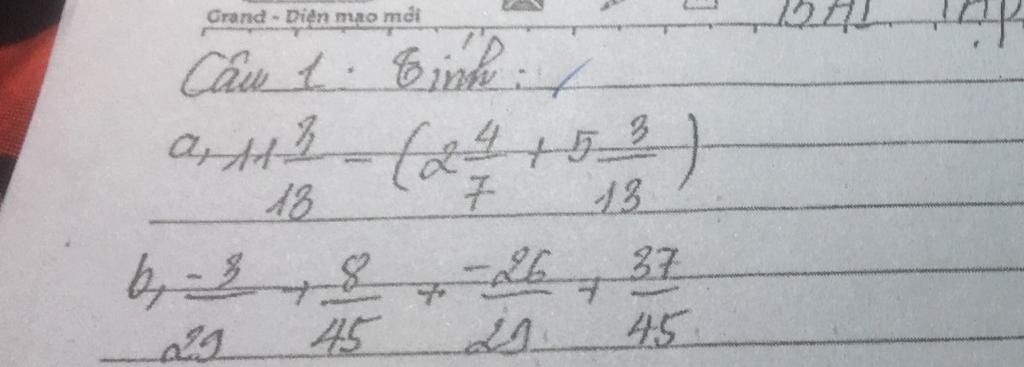 Grand - Diện mạo mới
BÀI TẬP
Câu 1: Tính:
a, 11 3/13 - (2 4/7 + 5 3/13)
b, -3/29 + 8/45 + -26/29 + 37/45